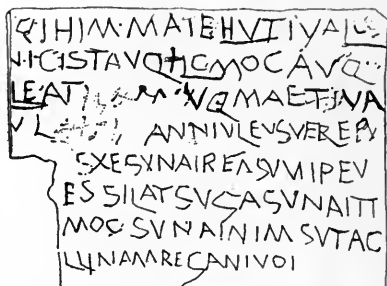 QIHIM·MAIEHVTIVAL
NICISTAVQHCMOCAVQ
LEAT VQMAETINA
VL ANNIVLEVSVEREPV
SXESVNAIREASVMIPEV
ESSILATSVGASVNAITI
MOCSVNAINIMSVTAC
LLINAMREGANIVOI